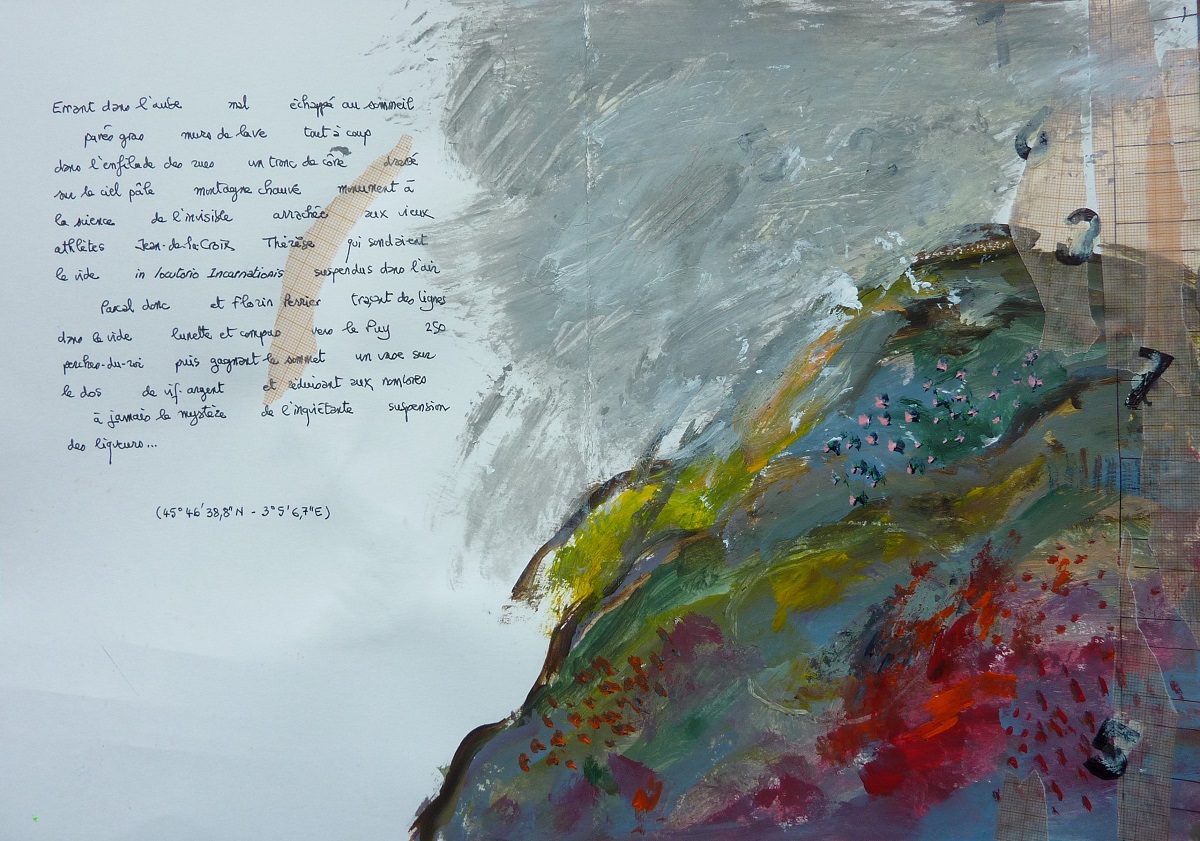 Errant dans l'aube mal échappé au sommeil
pavés gras murs de lave tout à coup
dans l'enfilade des rues un tronc de cône dressé
sur le ciel pâle montagne chauve monument à
la science de l'invisible arrachée aux vieux
athlètes Jean-de-la-Croix Thérèse qui sondaient
le vide in locutoris Incarnationis suspendus dans l'air
Pascal donc et Florin Perrier traçant des lignes
dans le vide lunette et compas vers le Puy 250
perches-du-roi puis gagnant le sommet un vase sur
le dos de vif-argent et réduisant aux nombres
à jamais le mystère de l'inquiétante suspension
des liqueurs...
(45°46'38,8"N - 3°5'6,7"E)
2
7
5